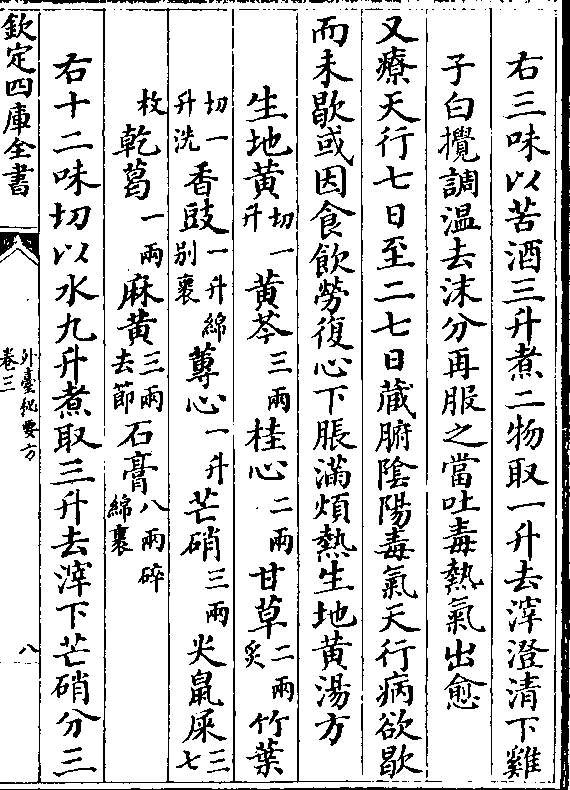 右三味以苦酒三升煮二物取一升去滓澄清下雞
子白攪調温去沫分再服之當吐毒熱氣出愈
又療天行七日至二七日藏腑陰陽毒氣天行病欲歇
而未歇或因食飲勞復心下脹滿煩熱生地黄湯方
生地黄切一升黄芩三兩桂心二兩甘草二兩炙竹葉
切一升洗香豉一升綿别裹蓴心一升芒硝三兩尖鼠屎三七
枚乾葛一兩麻黄三兩去節石膏八兩碎綿裹
右十二味切以水九升煮取三升去滓下芒硝分三
欽定四庫全書
外臺秘要方
卷三
八